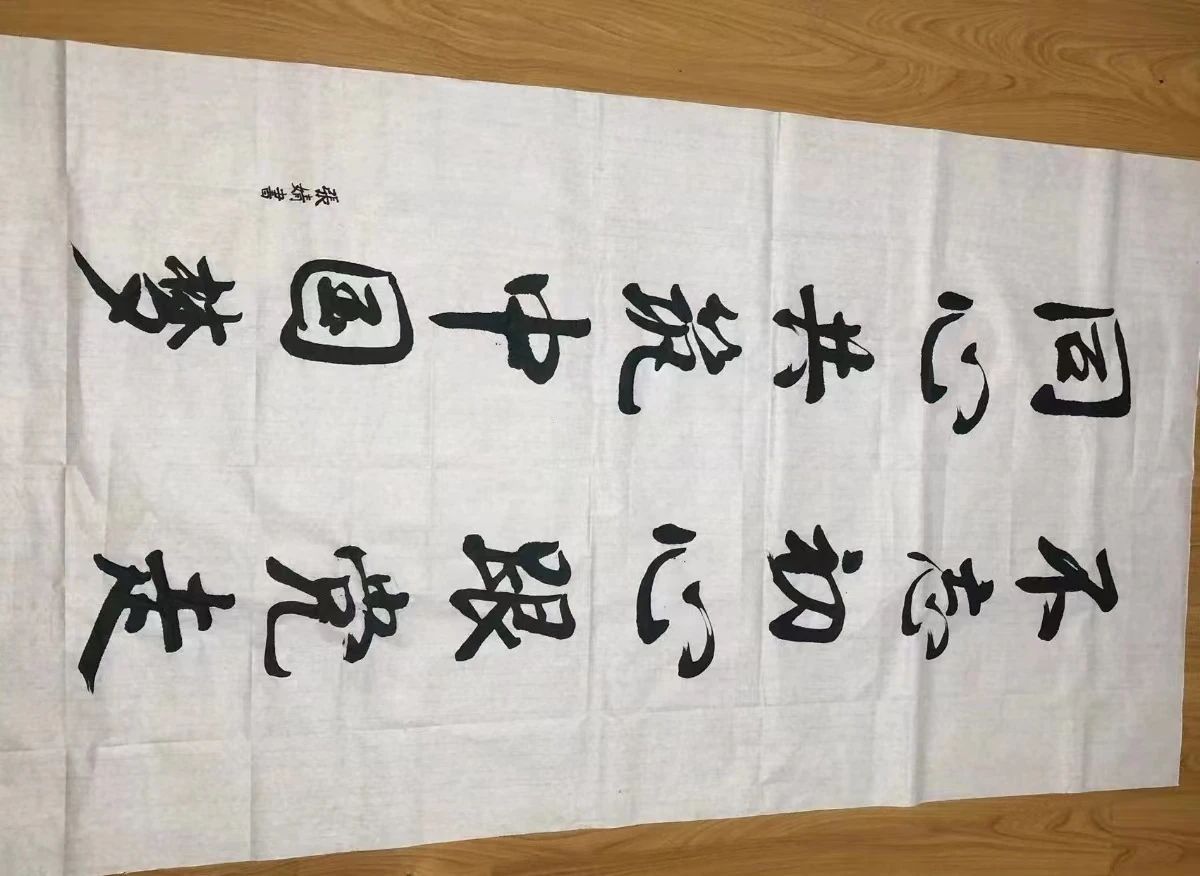 不忘初心跟党走
同心共筑中国梦
張婧書